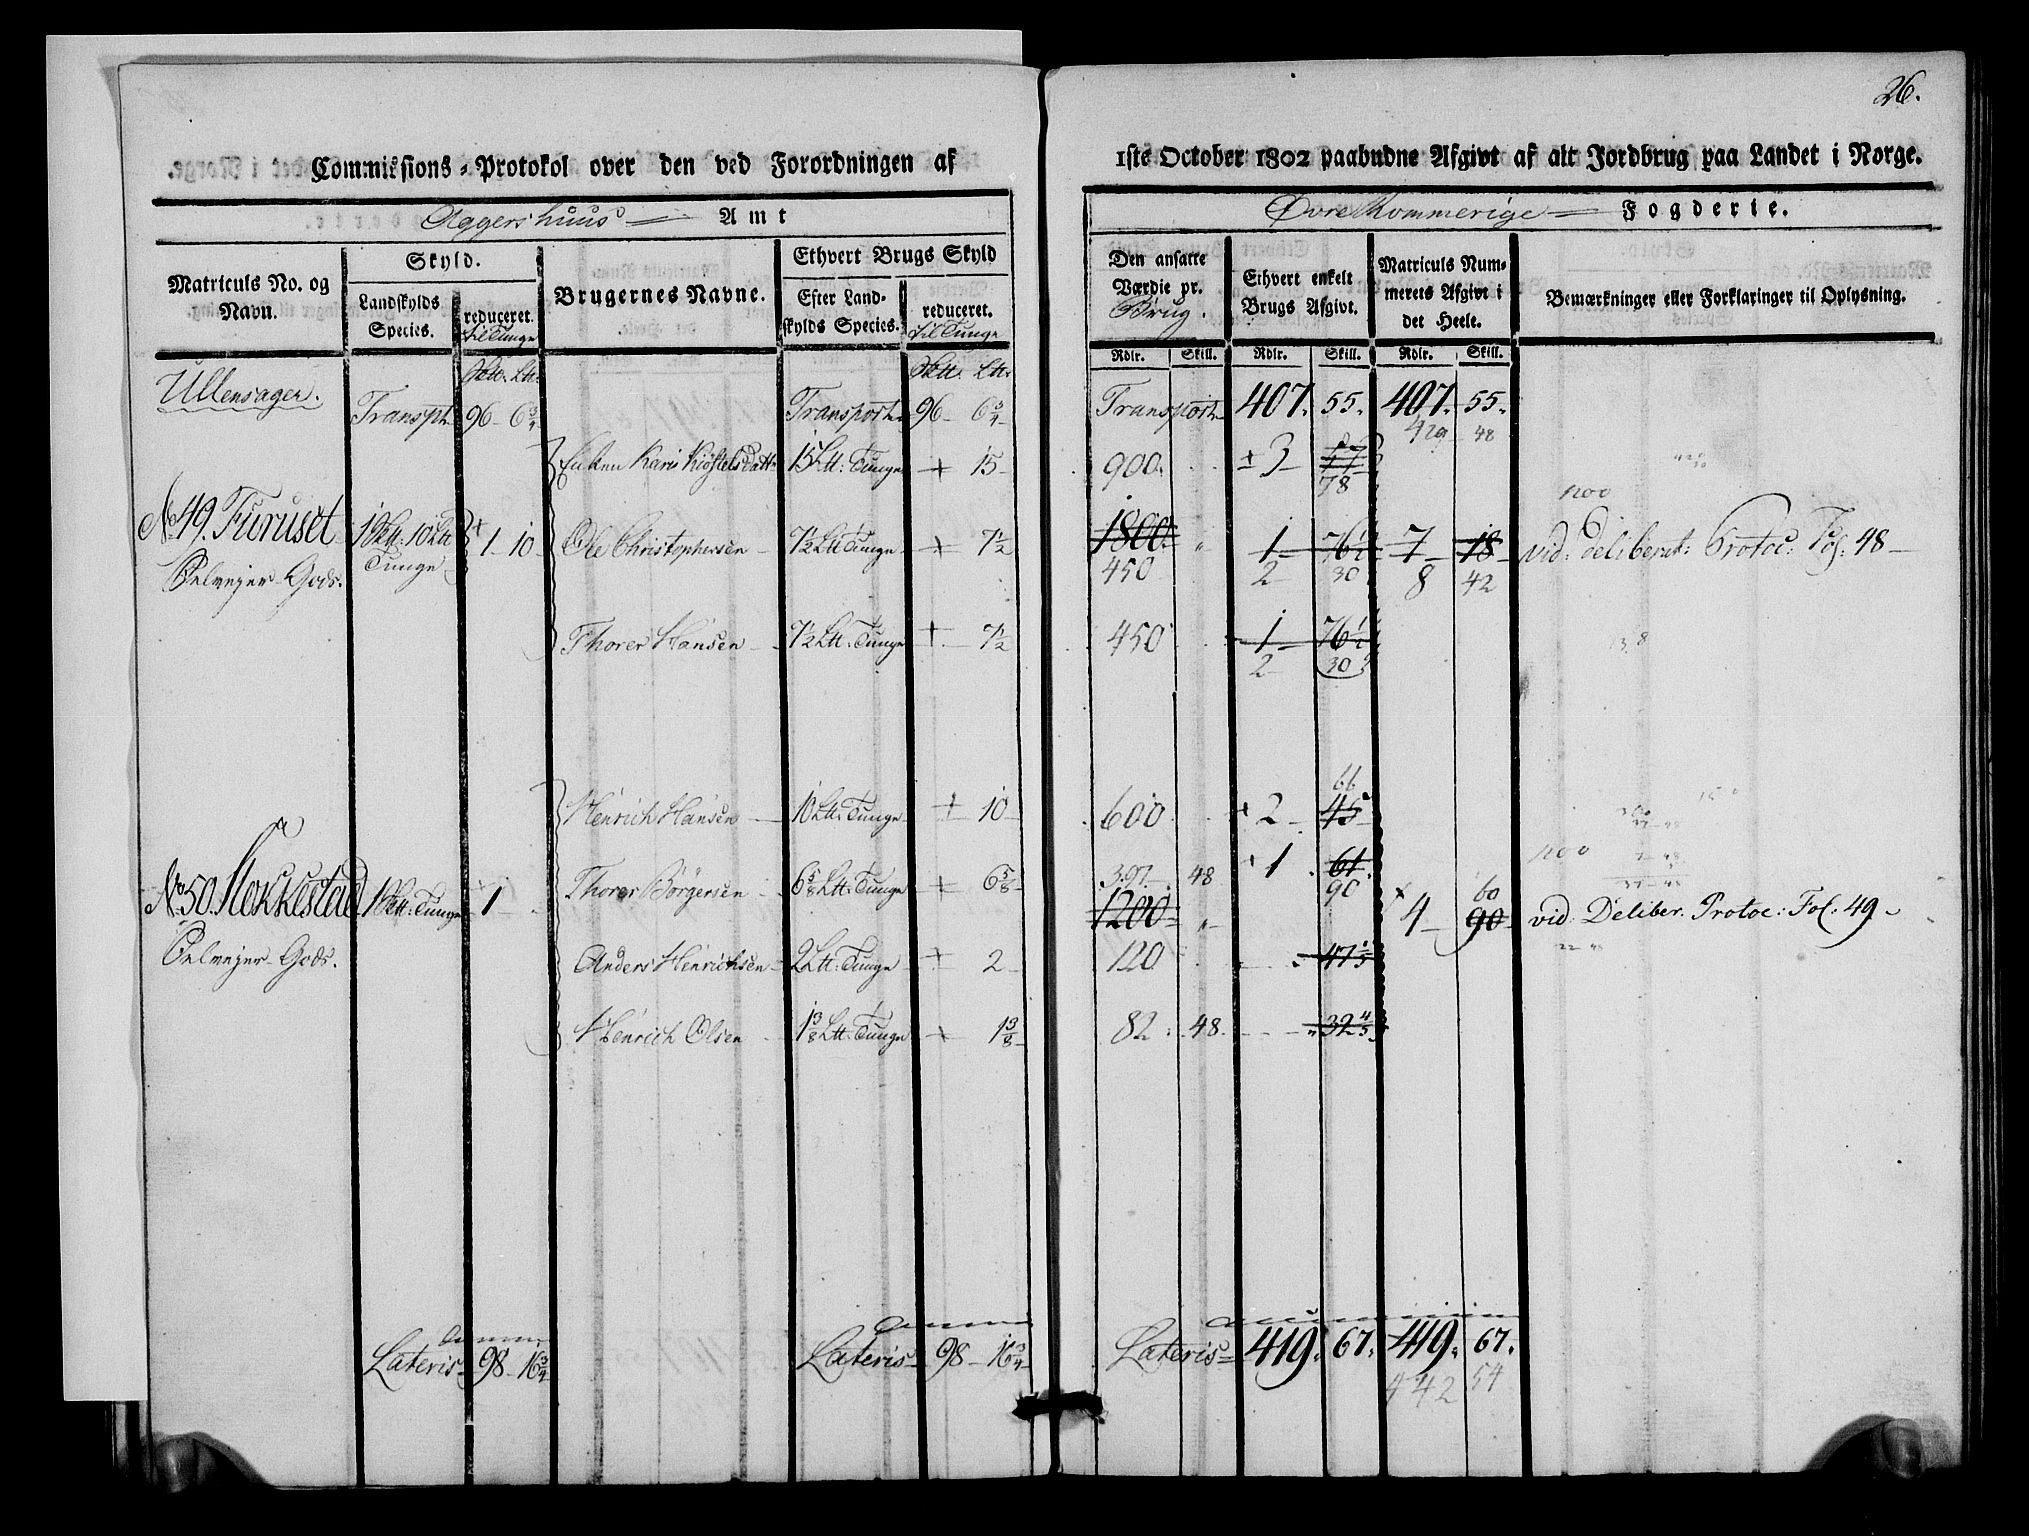 26.
Commissions-Protokol over den ved Forordningen af
1ste October 1802 paabudne Afgivt af alt Jordbrug paa Landet i Norge.
Aggershuus Amt
Øvre Rommerige Fogderie.
Matriculs No. og Navn.
Skyld.
Landskylds Species.
reduceret.
til Tunge
Brugernes Navne.
Ethvert Brugs Skyld
Efter Landskylds Species.
reduceret.
til Tunge
Den ansatte Værdie pr.
Brug.
Ethvert enkelt Brugs Afgivt.
Matriculs Nummerets Afgivt i det Heele.
Bemærkninger eller Forklaringer til Oplysning.
Rdlr. Skill. Rdlr. Skill. Rdlr. Skill.
Ullensager.
Transpt 96 6 3/4 Transport 96 6 3/4 Transport 407. 55. 407. 55.
48
Enken Karis 15 Ltt: Tunge 15 900. 3 78
1200
No 49. Furuset 1 10 Ole Christophersen 7 1/2 Ltt Tunge 7 1/2 1800. 1 76 1/2 7 18 vid: Deliberat: Protoc: Fol: 48
Tunge
Selveyer Gods. 450 2 30 8 42
Thorer Hansen 7 1/2 Ltt: Tunge 7 1/2 450 1 76 1/2
2 30
66
Henrich Hansen 10 Ltt: Tunge 10 600 2 45
Thorer Børgersen 6 5/8 Ltt: Tunge 6 5/8 397 48 1 61
90
No 50. Stokkestad 1 1 1200 4 90 vid: Deliber. Protoc: Fol: 49
60
Selveyer Gods. Anders Henrichsen 2 Ltt: Tunge 2 120 47 1/5
Henrich Olsen 1 3/8 Ltt: Tunge 1 3/8 82 48 32 4/5
Lateris 98 16 3/4 Lateris 98 16 3/4 Lateris 419. 67. 419. 67.
442 54